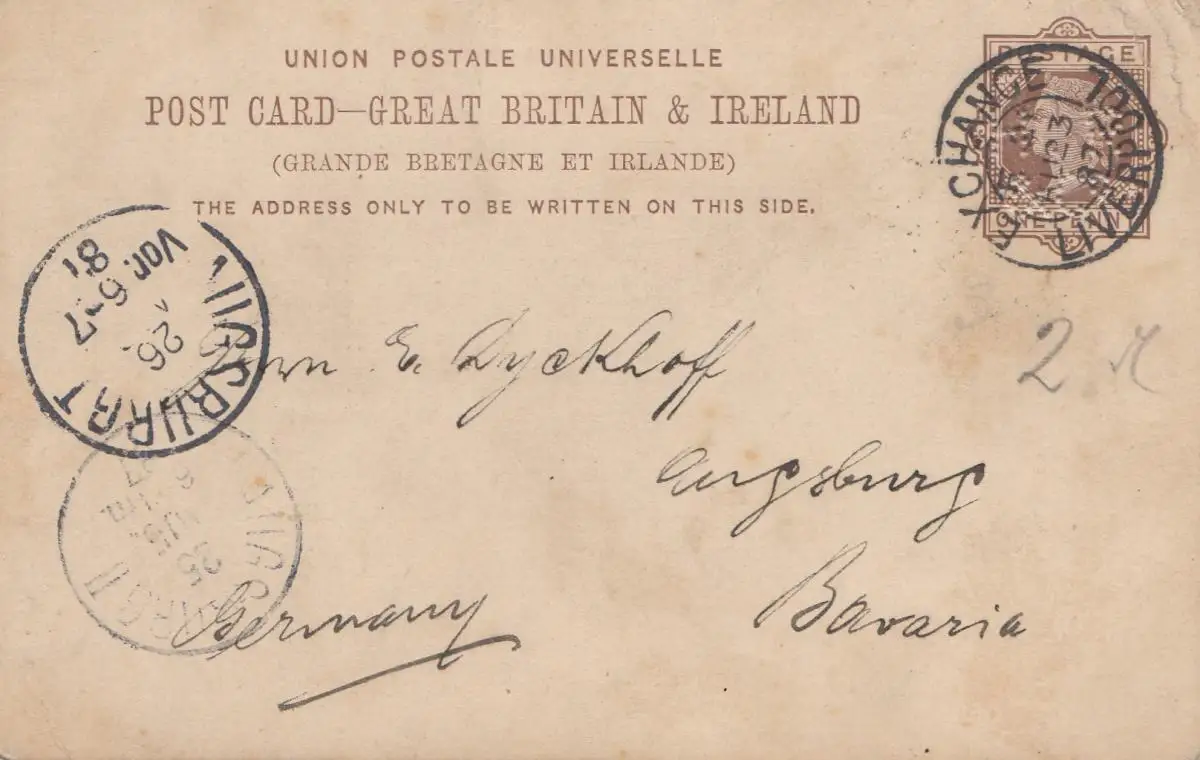 UNION POSTALE UNIVERSELLE
POST CARD—GREAT BRITAIN & IRELAND
(GRANDE BRETAGNE ET IRLANDE)
THE ADDRESS ONLY TO BE WRITTEN ON THIS SIDE.
POSTAGE
ONE PENNY
EXCHANGE
LIVERPOOL
23
Vor. 6-7
26.
Herrn E. Dyckhoff
Augsburg
Bavaria
Germany
2